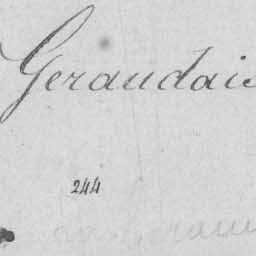 Geraudais
244